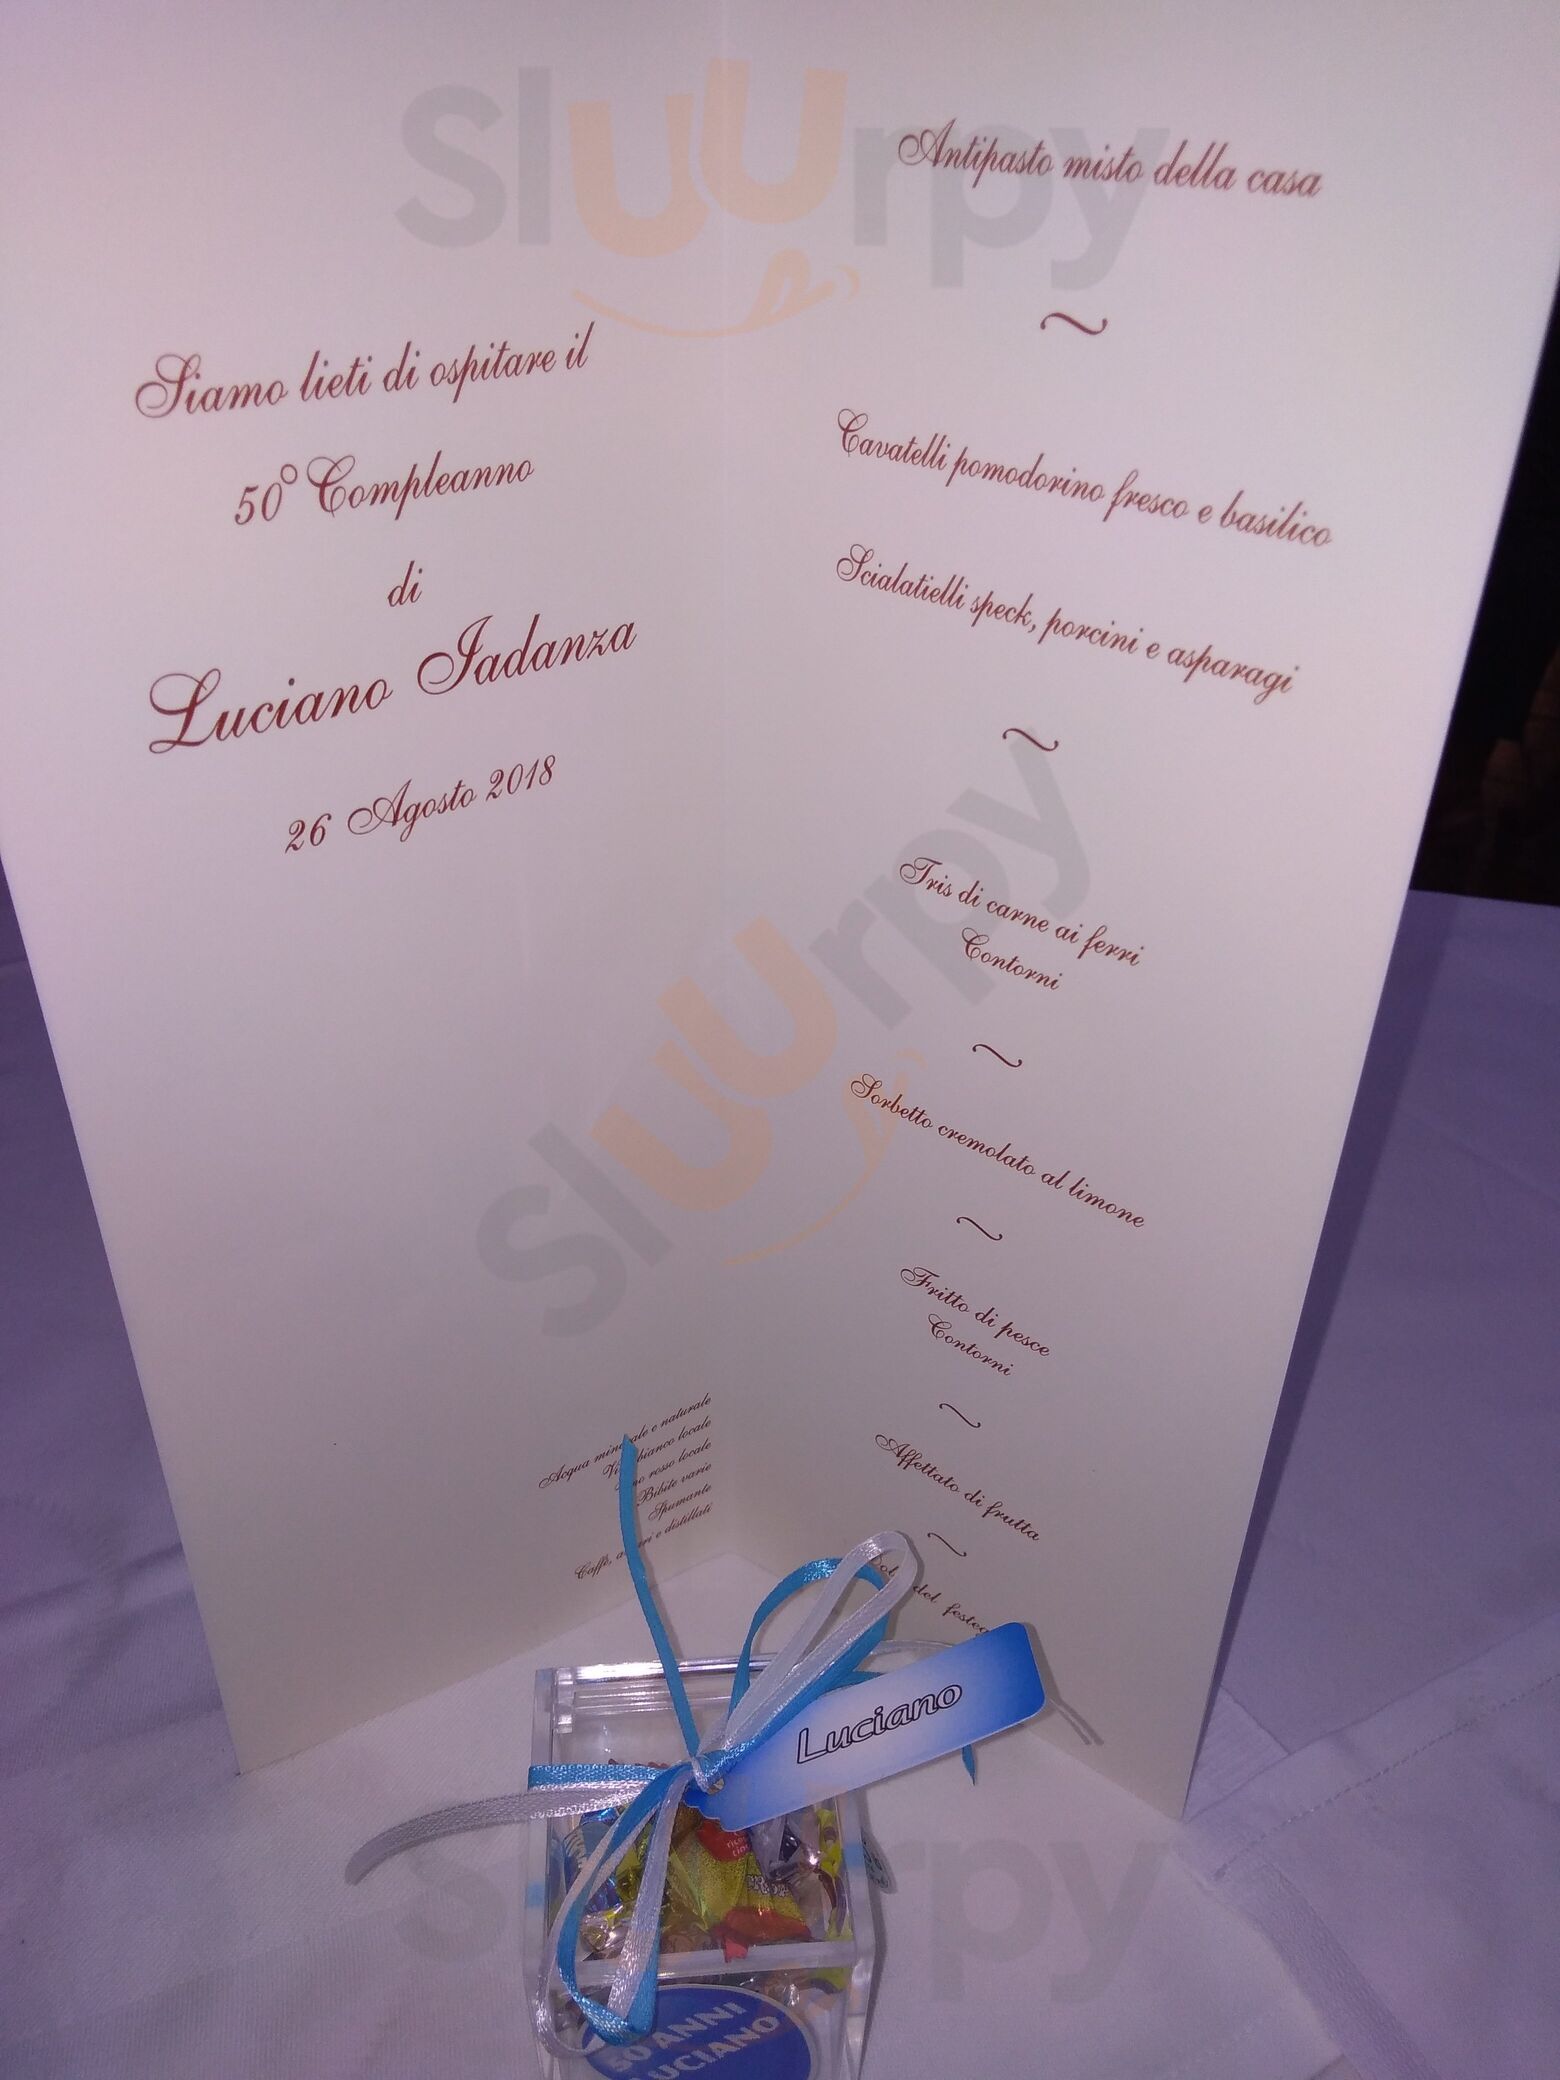 Siamo lieti di ospitare il
50° Compleanno
di
Luciano Iadanza
26 Agosto 2018
Acqua minerale e naturale
Vino bianco locale
Vino rosso locale
Bibite varie
Spumante
Caffè, amari e distillati
Antipasto misto della casa
~
Cavatelli pomodorino fresco e basilico
Scialatielli speck, porcini e asparagi
~
Tris di carne ai ferri
Contorni
~
Sorbetto cremolato al limone
~
Fritto di pesce
Contorni
~
Affettato di frutta
~
del
Luciano
50 ANNI
LUCIANO
Sluurpy
Sluurpy
Sluurpy